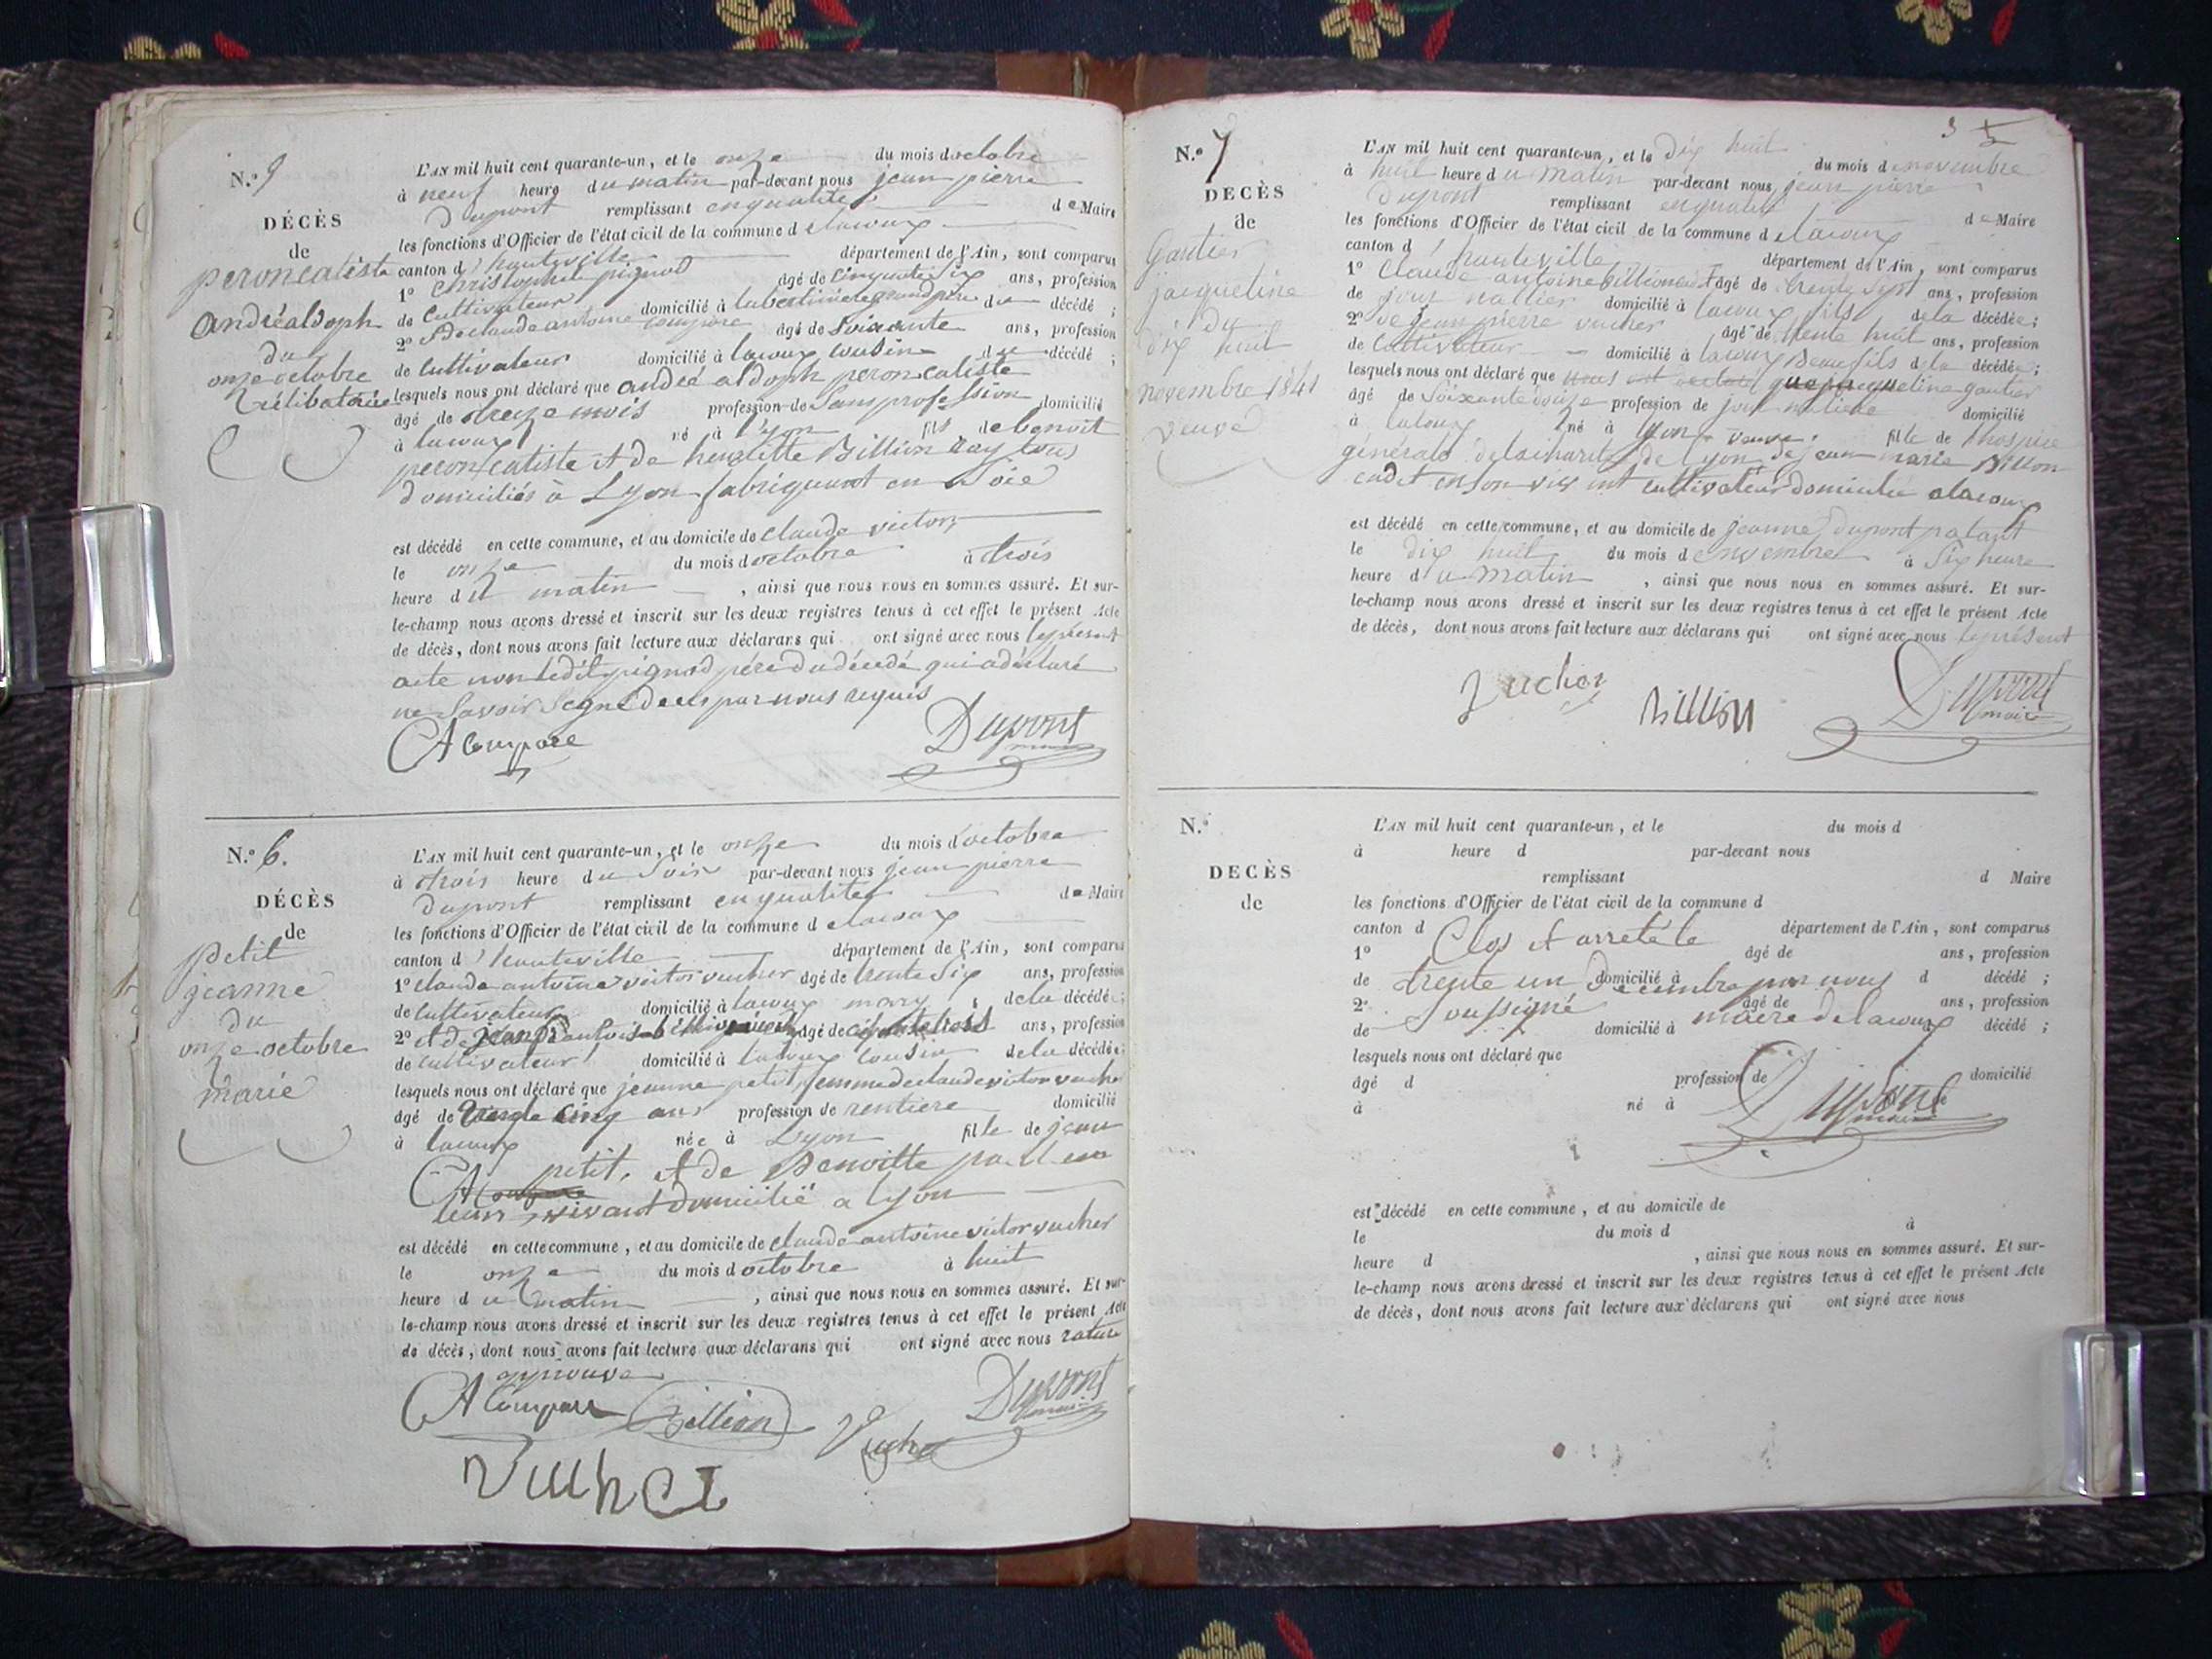 N.º 9
DÉCÈS
de
peroncaliste
andré aldoph
du
onze octobre
célibataire
L'AN mil huit cent quarante-un, et le onze du mois d'octobre
à neuf heure du matin par-devant nous jean pierre
Dupont remplissant en qualité de Maire
les fonctions d'Officier de l'état civil de la commune de lacoux
canton d'hauteville département de l'Ain, sont comparus
1º Christophe pignod âgé de Cinquante Six ans, profession
de Cultivateur domicilié à grand père du décédé ;
2º et de claude antoine compare âgé de Soixante ans, profession
de cultivateur domicilié à lacoux cousin du décédé ;
lesquels nous ont déclaré que andré aldoph peroncaliste
âgé de treize mois profession de Sans profession domicilié
à lacoux né à Lyon fils de benoit
peroncaliste et de henriette Billion ray tous
domiciliés à Lyon fabriquant en Soie
est décédé en cette commune, et au domicile de claude victor
le onze du mois d'octobre à trois
heure du matin , ainsi que nous nous en sommes assuré. Et sur-
le-champ nous avons dressé et inscrit sur les deux registres tenus à cet effet le présent Acte
de décès, dont nous avons fait lecture aux déclarans qui ont signé avec nous le présent
acte non ledit pignod père du décédé qui a déclaré
ne Savoir Signé de ce par nous requis
A Compare Dupont
maire
N.º 6.
DÉCÈS
de
petit
jeanne
du
onze octobre
marié
L'AN mil huit cent quarante-un, et le onze du mois d'octobre
à trois heure du Soir par-devant nous jean pierre
Dupont remplissant en qualité de Maire
les fonctions d'Officier de l'état civil de la commune de lacoux
canton d'hauteville département de l'Ain, sont comparus
1º claude antoine victor vucher âgé de trente Six ans, profession
de cultivateur domicilié à lacoux mary de la décédée ;
2º et de âgé de ans, profession
de cultivateur domicilié à lacoux cousin de la décédée ;
lesquels nous ont déclaré que jeanne petit femme de claude victor vucher
âgé de cinq ans profession de rentiere domicilié
à lacoux née à Lyon fille de jean
petit, et de Benoitte
A Compare
leurs vivant domicilié a lyon
est décédé en cette commune, et au domicile de claude antoine victor vucher
le onze du mois d'octobre à huit
heure du matin , ainsi que nous nous en sommes assuré. Et sur-
le-champ nous avons dressé et inscrit sur les deux registres tenus à cet effet le présent Acte
de décès, dont nous avons fait lecture aux déclarans qui ont signé avec nous rature
approuve
A Compare Billion Vucher Dupont
maire
Vucher
N.º 7
DECÈS
de
Gautier
jacqueline
du
dix huit
novembre 1841
veuve
L'AN mil huit cent quarante-un, et le Dix huit du mois de novembre
à huit heure du Matin par-devant nous jean pierre
Dupont remplissant en qualité de Maire
les fonctions d'Officier de l'état civil de la commune de lacoux
canton d'hauteville département de l'Ain, sont comparus
1º Claude antoine billion âgé de trente Sept ans, profession
de jour nalier domicilié à lacoux fils de la décédée ;
2º de jean pierre vucher âgé de trente huit ans, profession
de Cultivateur domicilié à lacoux Beau fils de la décédée ;
lesquels nous ont déclaré que jacqueline gautier
âgé de Soixante douze profession de jour naliere domicilié
à lacoux né à lyon veuve fille de l'hospice
générale de la charité de Lyon de jean marie Billion
cadet en son vivent cultivateur domicilié a lacoux
est décédé en cette commune, et au domicile de jeanne Dupont
le dix huit du mois de novembre à Six heure
heure du Matin , ainsi que nous nous en sommes assuré. Et sur-
le-champ nous avons dressé et inscrit sur les deux registres tenus à cet effet le présent Acte
de décès, dont nous avons fait lecture aux déclarans qui ont signé avec nous le présent
Vucher Billion Dupont
maire
N.º
DECÈS
de
L'AN mil huit cent quarante-un, et le du mois d
à heure d par-devant nous
remplissant d Maire
les fonctions d'Officier de l'état civil de la commune d
canton d département de l'Ain, sont comparus
Clos et arreté le
1º âgé de ans, profession
de domicilié à d décédé ;
trente un Décembre par nous
2º âgé de ans, profession
Soussigné maire de lacoux
de domicilié à décédé ;
lesquels nous ont déclaré que
âgé d profession de domicilié
à né à
Dupont
maire
est décédé en cette commune, et au domicile de
le du mois d à
heure d , ainsi que nous nous en sommes assuré. Et sur-
le-champ nous avons dressé et inscrit sur les deux registres tenus à cet effet le présent Acte
de décès, dont nous avons fait lecture aux déclarans qui ont signé avec nous